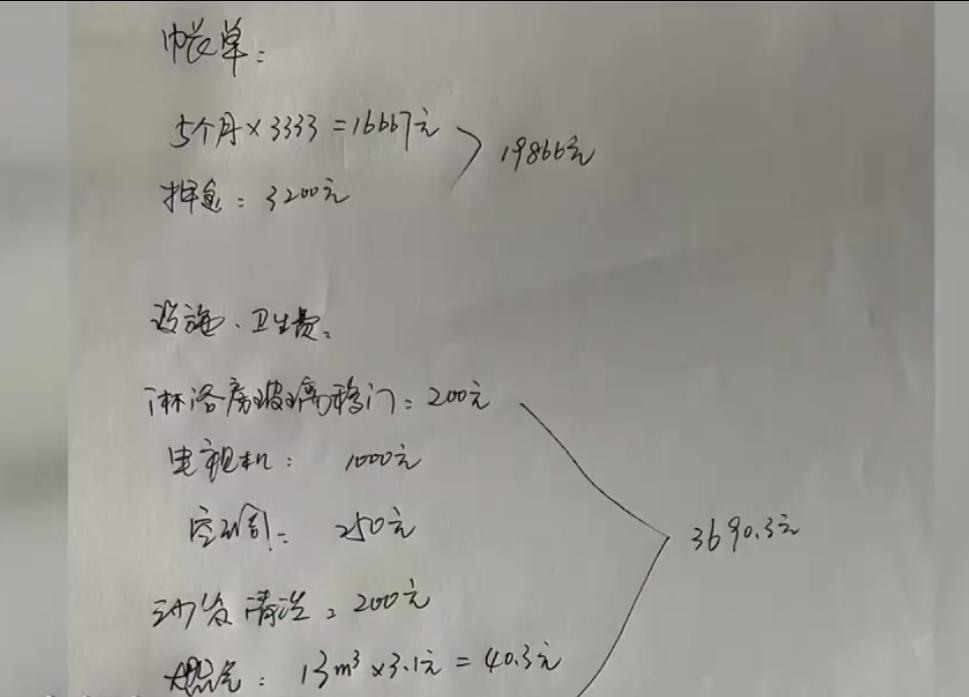 帐单：
5个月×3333=16667元
19866元
押金：3200元
设施、卫生费：
淋浴房玻璃移门：200元
电视机：1000元
空调：250元
3690.3元
沙发清洗：200元
燃气：13m³×3.1元=40.3元